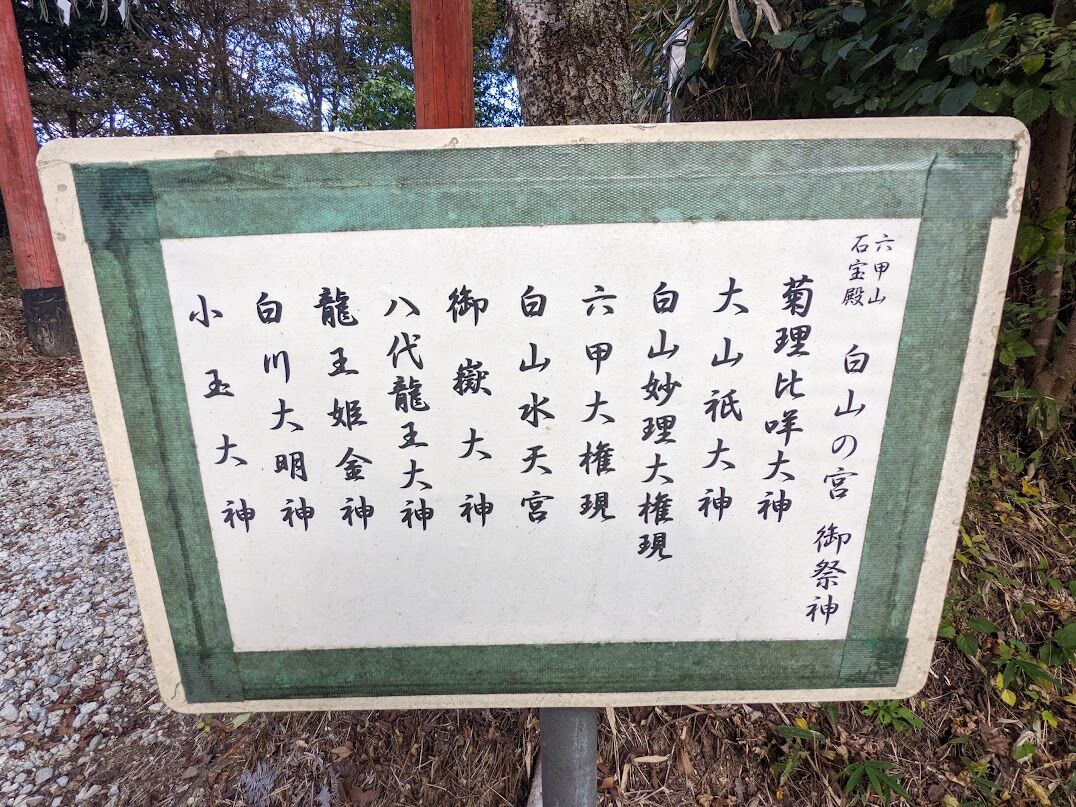 六甲山
石宝殿 白山の宮 御祭神
菊理比咩大神
大山祇大神
白山妙理大権現
六甲大権現
白山水天宮
御嶽大神
八代龍王大神
龍王姫金神
白川大明神
小玉大神